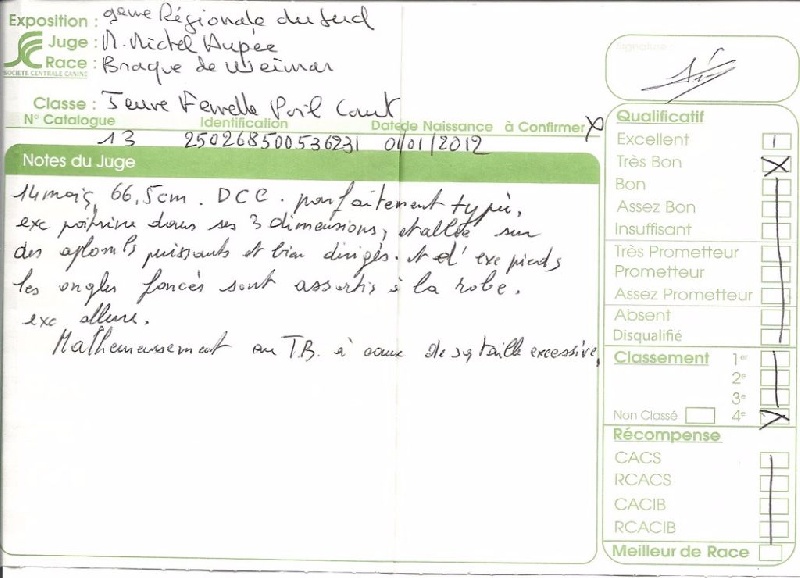 Exposition : 9eme Régionale du Sud
Juge : M. Michel Aupée
Race : Braque de Weimar
SOCIETE CENTRALE CANINE
Classe : Jeune Femelle Poil Court
N° Catalogue Identification Date de Naissance à Confirmer X
13 250268500536231 01/01/2012
Notes du Juge
14 mois, 66,5cm. DCC. parfaitement typée,
exc poitrine dans ses 3 dimensions, et allée sur
des aplombs puissants et bien dirigés. et d'exc pieds
les ongles foncés sont assortis à la robe.
exc allure.
Malheureusement au T.B. à cause de sa taille excessive,
Signature
Qualificatif
Excellent
Très Bon X
Bon
Assez Bon
Insuffisant
Très Prometteur
Prometteur
Assez Prometteur
Absent
Disqualifié
Classement 1er
2e
3e
Non Classé 4e X
Récompense
CACS
RCACS
CACIB
RCACIB
Meilleur de Race